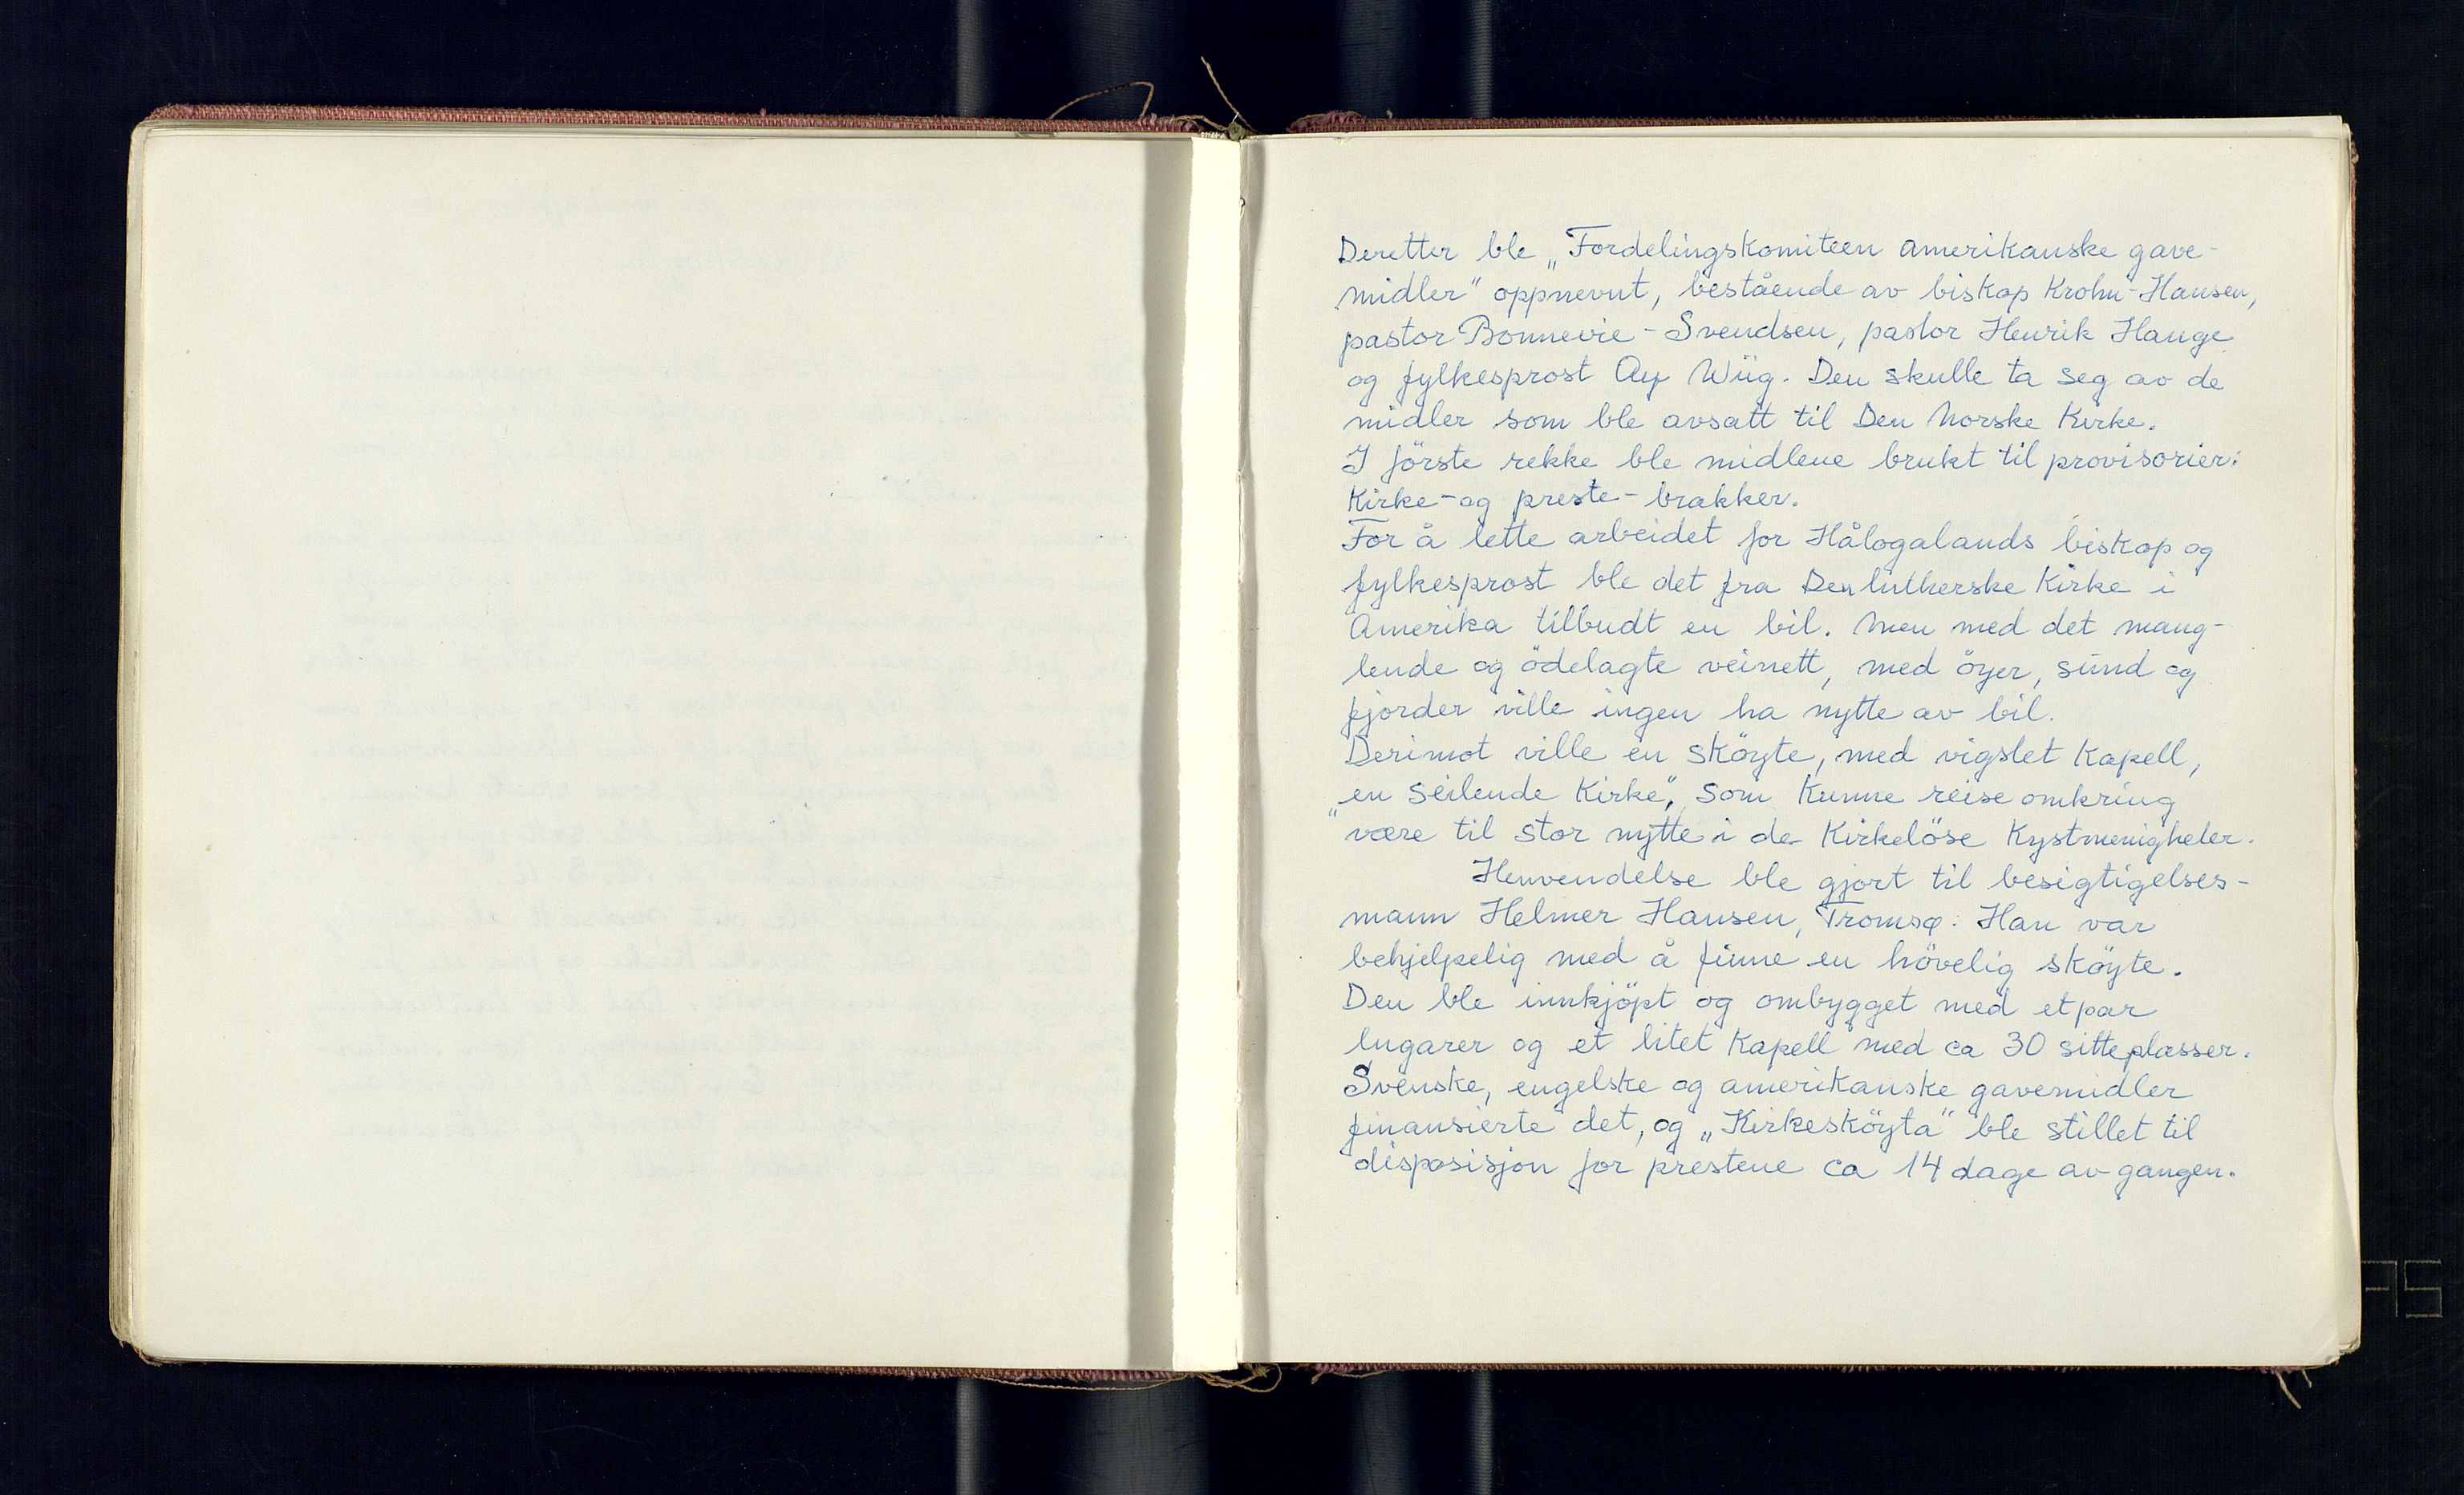 Deretter ble „Fordelingskomiteen amerikanske gave-
midler" oppnevnt, bestående av biskop Krohn-Hansen,
pastor Bonnevie-Svendsen, pastor Henrik Hauge
og fylkesprost Ay Wiig. Den skulle ta seg av de
midler som ble avsatt til Den Norske Kirke.
I förste rekke ble midlene brukt til provisorier:
Kirke-og preste-brakker.
For å lette arbeidet for Hålogalands biskop og
fylkesprost ble det fra Den lutherske Kirke i
Amerika tilbudt en bil. Men med det mang-
lende og ödelagte veinett, med öyer, sund og
fjorder ville ingen ha nytte av bil.
Derimot ville en sköyte, med vigslet Kapell,
„en seilende Kirke", som Kunne reise omkring
være til stor nytte i de Kirkelöse Kystmenigheter.
Henvendelse ble gjort til besigtigelses-
mann Helmer Hansen, Tromsø. Han var
behjelpelig med å finne en hövelig sköyte.
Den ble innkjöpt og ombygget med et par
lugarer og et litet Kapell med ca 30 sitteplasser.
Svenske, engelske og amerikanske gavemidler
finansierte det, og „Kirkesköyta" ble stillet til
disposisjon for prestene ca 14 dage av gangen.